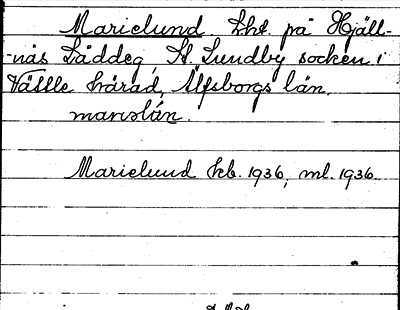 Marielund Lht. på Hjäll-
-näs Säddeg, St. Lundby socken i
Vättle härad, Älfsborgs län.
manslån.
Marielund kb. 1936, ml. 1936.